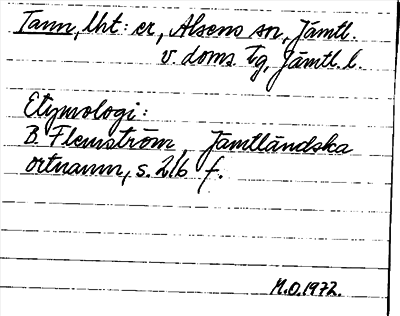 Tann, lht: er, Alsens sn, Jämtl.
v. doms tg, Jämtl. l.
Etymologi:
B. Flemström, Jämtländska
ortnamn, s. 216 f.
M.O. 1972.